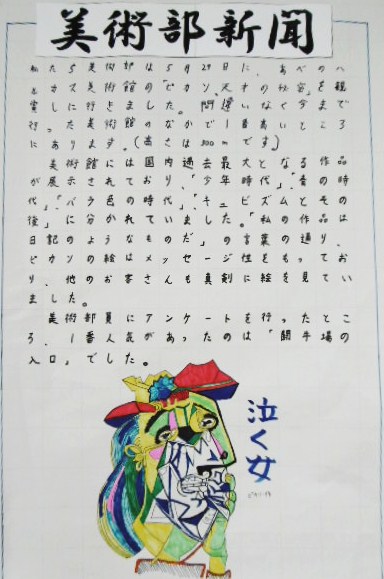 美術部新聞
私たち美術部は5月29日に、あべのハ
ルカス美術館の「ピカソ、天才の秘密」を観
賞しに行きました。間違いなく今まで
行った美術館のなかで一番高いところ
にあります。(高さは300mです)
美術館には国内過去最大となる作品
が展示されており、「少年時代」、「青の時
代」、「バラ色の時代」、「キュビズムとその
後」に分かれていました。「私の作品は
日記のようなものだ。」の言葉の通り、
ピカソの絵はメッセージ性をもってお
り、他のお客さんも真剣に絵を見てい
ました。
美術部員にアンケートを行ったとこ
ろ、1番人気があったのは「闘牛場の
入口」でした。
泣く女